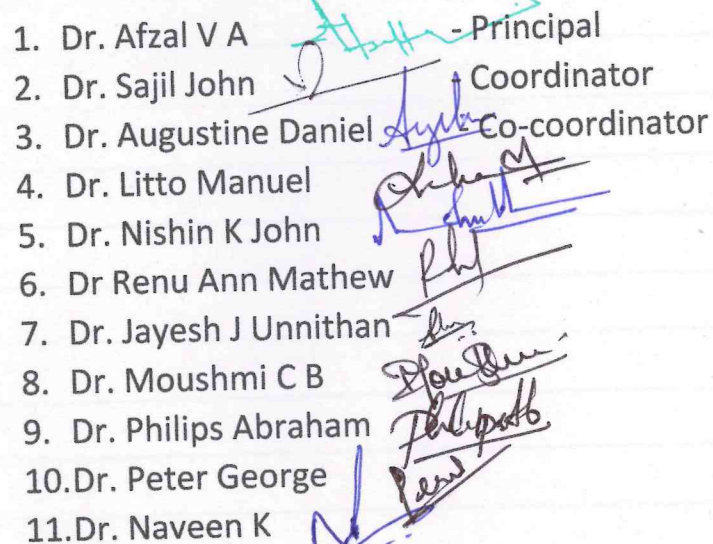 1. Dr. Afzal V A - Principal
2. Dr. Sajil John - Coordinator
3. Dr. Augustine Daniel - Co-coordinator
4. Dr. Litto Manuel
5. Dr. Nishin K John
6. Dr Renu Ann Mathew
7. Dr. Jayesh J Unnithan
8. Dr. Moushmi C B
9. Dr. Philips Abraham
10.Dr. Peter George
11.Dr. Naveen K